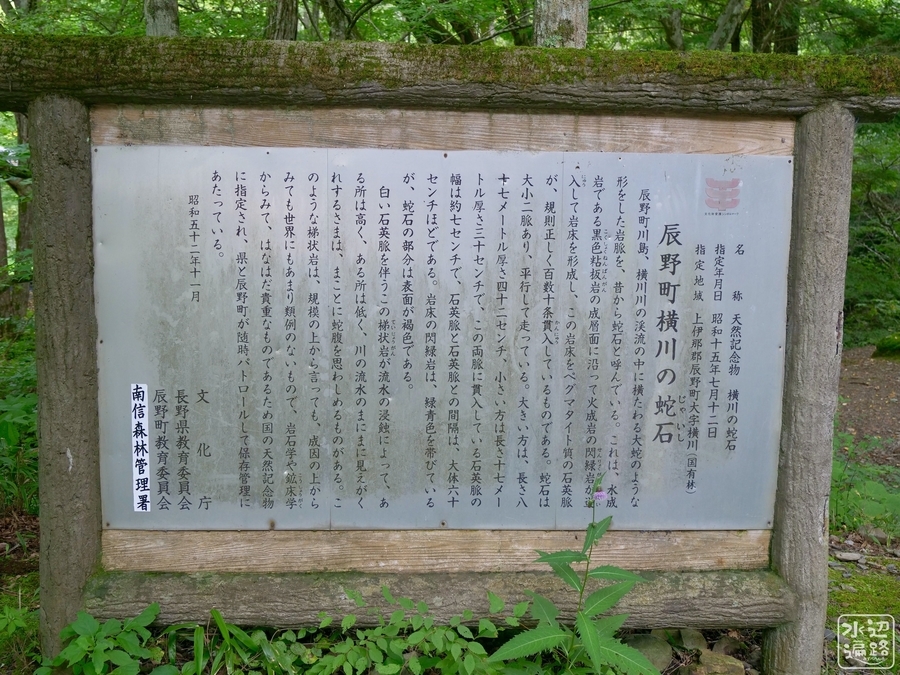 名　　称　天然記念物　横川の蛇石
指定年月日　昭和十五年七月十二日
指定地域　上伊那郡辰野町大字横川（国有林）
辰野町横川の蛇石
じゃいし
辰野町川島、横川川の渓流の中に横たわる大蛇のような
形をした岩脈を、昔から蛇石と呼んでいる。これは、水成
岩である黒色粘板岩の成層面に沿って火成岩の閃緑岩が
入して岩床を形成し、この岩床をペグマタイト質の石英脈
が、規則正しく百数十条貫入しているものである。蛇石は
大小二脈あり、平行して走っている。大きい方は、長さ八
十七メートル厚さ四十二センチ、小さい方は長さ十七メー
トル厚さ三十センチで、この両脈に貫入している石英脈の
幅は約七センチで、石英脈と石英脈との間隔は、大体六十
センチほどである。岩床の閃緑岩は、緑青色を帯びている
が、蛇石の部分は表面が褐色である。
白い石英脈を伴うこの梯状岩が流水の浸蝕によって、あ
る所は高く、ある所は低く、川の流水のまにまに見えがく
れするさまは、まことに蛇腹を思わしめるものがある。こ
のような梯状岩は、規模の上から言っても、成因の上から
みても世界にもあまり類例のないもので、岩石学や鉱床学
からみて、はなはだ貴重なものであるため国の天然記念物
に指定され、県と辰野町が随時パトロールして保存管理に
あたっている。
昭和五十二年十一月
文化庁
長野県教育委員会
辰野町教育委員会
南信森林管理署
水辺遍路